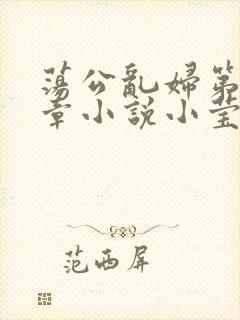 蕩公亂婦第
章小說小莹
范西屏